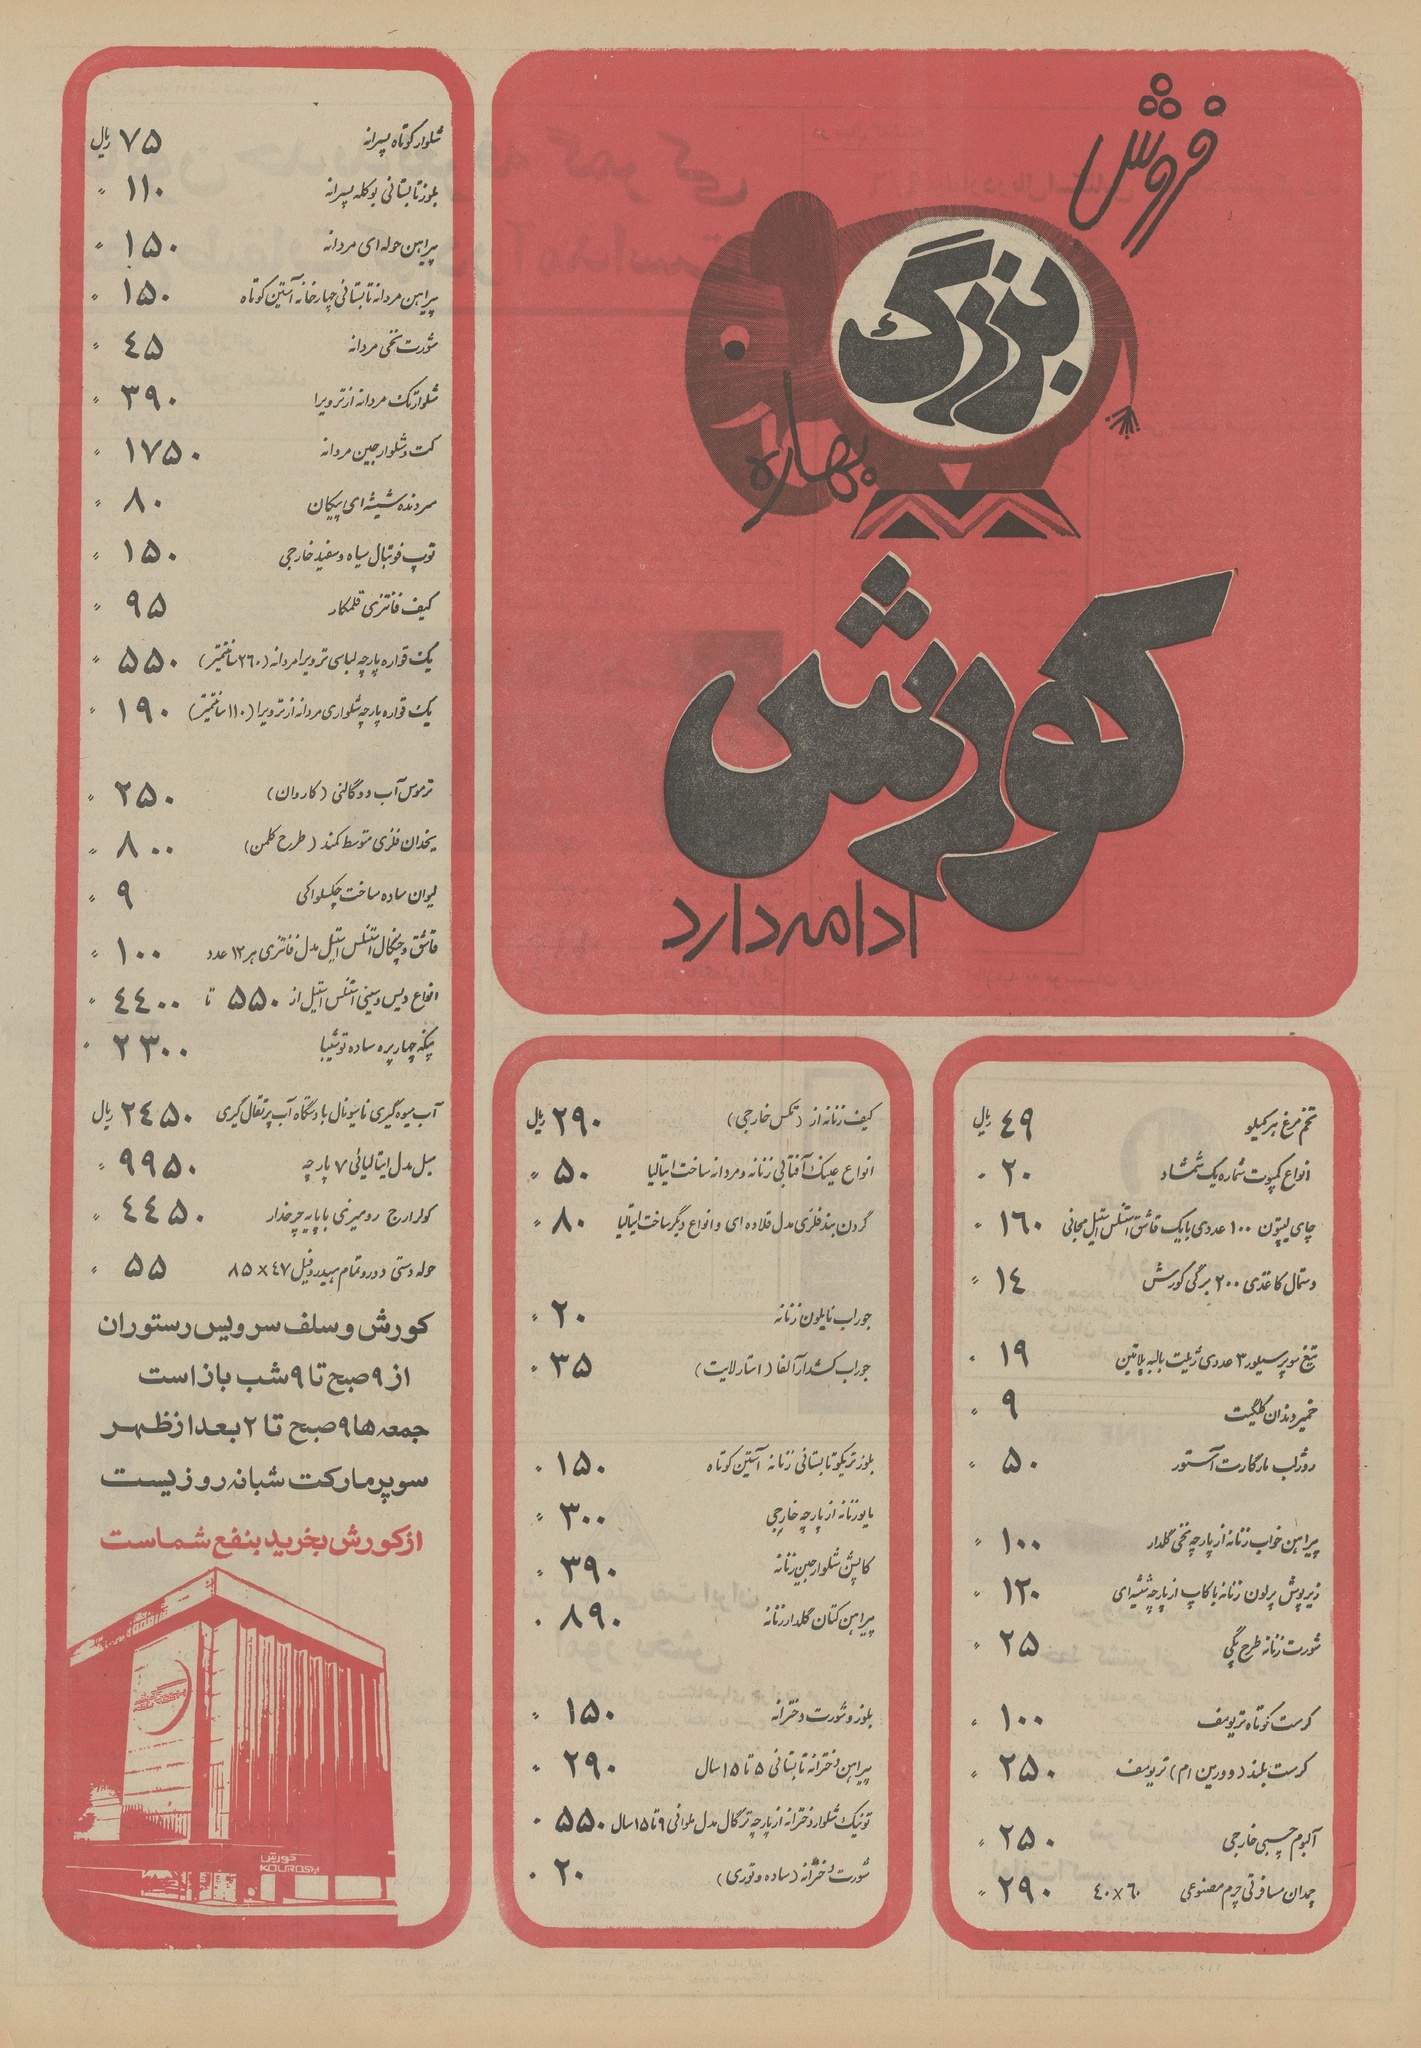 فروش
بزرگ
بهاره
کورش
ادامه دارد
تخم مرغ هر کیلو ۴۹ ریال
انواع کمپوت شماره یک شمشاد ۲۰ "
چای لیپتون ۱۰۰ عددی با یک قاشق استنلس استیل مجانی ۱۶۰ "
دستمال کاغذی ۲۰۰ برگی کورش ۱۴ "
تیغ سوپر سیلور ۳ عددی ژیلت با لبه پلاتین ۱۹ "
خمیر دندان کلگیت ۹ "
روژلب مارگارت آستور ۵۰ "
پیراهن خواب زنانه از پارچه نخی گلدار ۱۰۰ "
زیرپوش پرلون زنانه با کاپ از پارچه شیشه ای ۱۲۰ "
شورت زنانه طرح پگی ۲۵ "
کرست کوتاه تریومف ۱۰۰ "
کرست بلند (دورین ام) تریومف ۲۵۰ "
آلبوم چسبی خارجی ۲۵۰ "
چمدان مسافرتی چرم مصنوعی ۶۰×۴۰ ۲۹۰ "
کیف زنانه از (تکس خارجی) ۲۹۰ ریال
انواع عینک آفتابی زنانه و مردانه ساخت ایتالیا ۵۰ "
گردن بند فلزی مدل قلاده ای و انواع دیگر ساخت ایتالیا ۸۰ "
جوراب نایلون زنانه ۲۰ "
جوراب کشدار آلفا (استارلایت) ۳۵ "
بلوز تریکو تابستانی زنانه آستین کوتاه ۱۵۰ "
مایو زنانه از پارچه خارجی ۳۰۰ "
کاپشن شلوار جین زنانه ۳۹۰ "
پیراهن کتان گلدار زنانه ۸۹۰ "
بلوز و شورت دخترانه ۱۵۰ "
پیراهن دخترانه تابستانی ۵ تا ۱۵ سال ۲۹۰ "
تونیک شلوار دخترانه از پارچه ترگال مدل ملوانی ۹ تا ۱۵ سال ۵۵۰ "
شورت دخترانه (ساده و توری) ۲۰ "
شلوار کوتاه پسرانه ۷۵ ریال
بلوز تابستانی بوکله پسرانه ۱۱۰ "
پیراهن حوله ای مردانه ۱۵۰ "
پیراهن مردانه تابستانی چهارخانه آستین کوتاه ۱۵۰ "
شورت نخی مردانه ۴۵ "
شلوار تک مردانه از ترویرا ۳۹۰ "
کت و شلوار جین مردانه ۱۷۵۰ "
سردنده شیشه ای پیکان ۸۰ "
توپ فوتبال سیاه و سفید خارجی ۱۵۰ "
کیف فانتزی قلمکار ۹۵ "
یک قواره پارچه لباسی ترویرا مردانه (۲۶۰ سانتیمتر) ۵۵۰ "
یک قواره پارچه شلواری مردانه از ترویرا (۱۱۰ سانتیمتر) ۱۹۰ "
ترموس آب دو گالنی (کاروان) ۲۵۰ "
یخدان فلزی متوسط کمند (طرح کلمن) ۸۰۰ "
لیوان ساده ساخت چکسلواکی ۹ "
قاشق و چنگال استنلس استیل مدل فانتزی هر ۱۲ عدد ۱۰۰ "
انواع دیس و سینی استنلس استیل از ۵۵۰ تا ۴۴۰۰ "
پنکه چهارپره ساده توشیبا ۲۳۰۰ "
آب میوه گیری ناسیونال با دستگاه آب پرتقال گیری ۲۴۵۰ ریال
مبل مدل ایتالیائی ۷ پارچه ۹۹۵۰ "
کولر ارج رومیزی با پایه چرخدار ۴۴۵۰ "
حوله دستی دورو تمام هیدروفیل ۴۷×۸۵ ۵۵ "
کورش و سلف سرویس رستوران
از ۹ صبح تا ۹ شب باز است
جمعه ها ۹ صبح تا ۲ بعد از ظهر
سوپرمارکت شبانه روزیست
از کورش بخرید بنفع شماست
کورش
KOUROSH